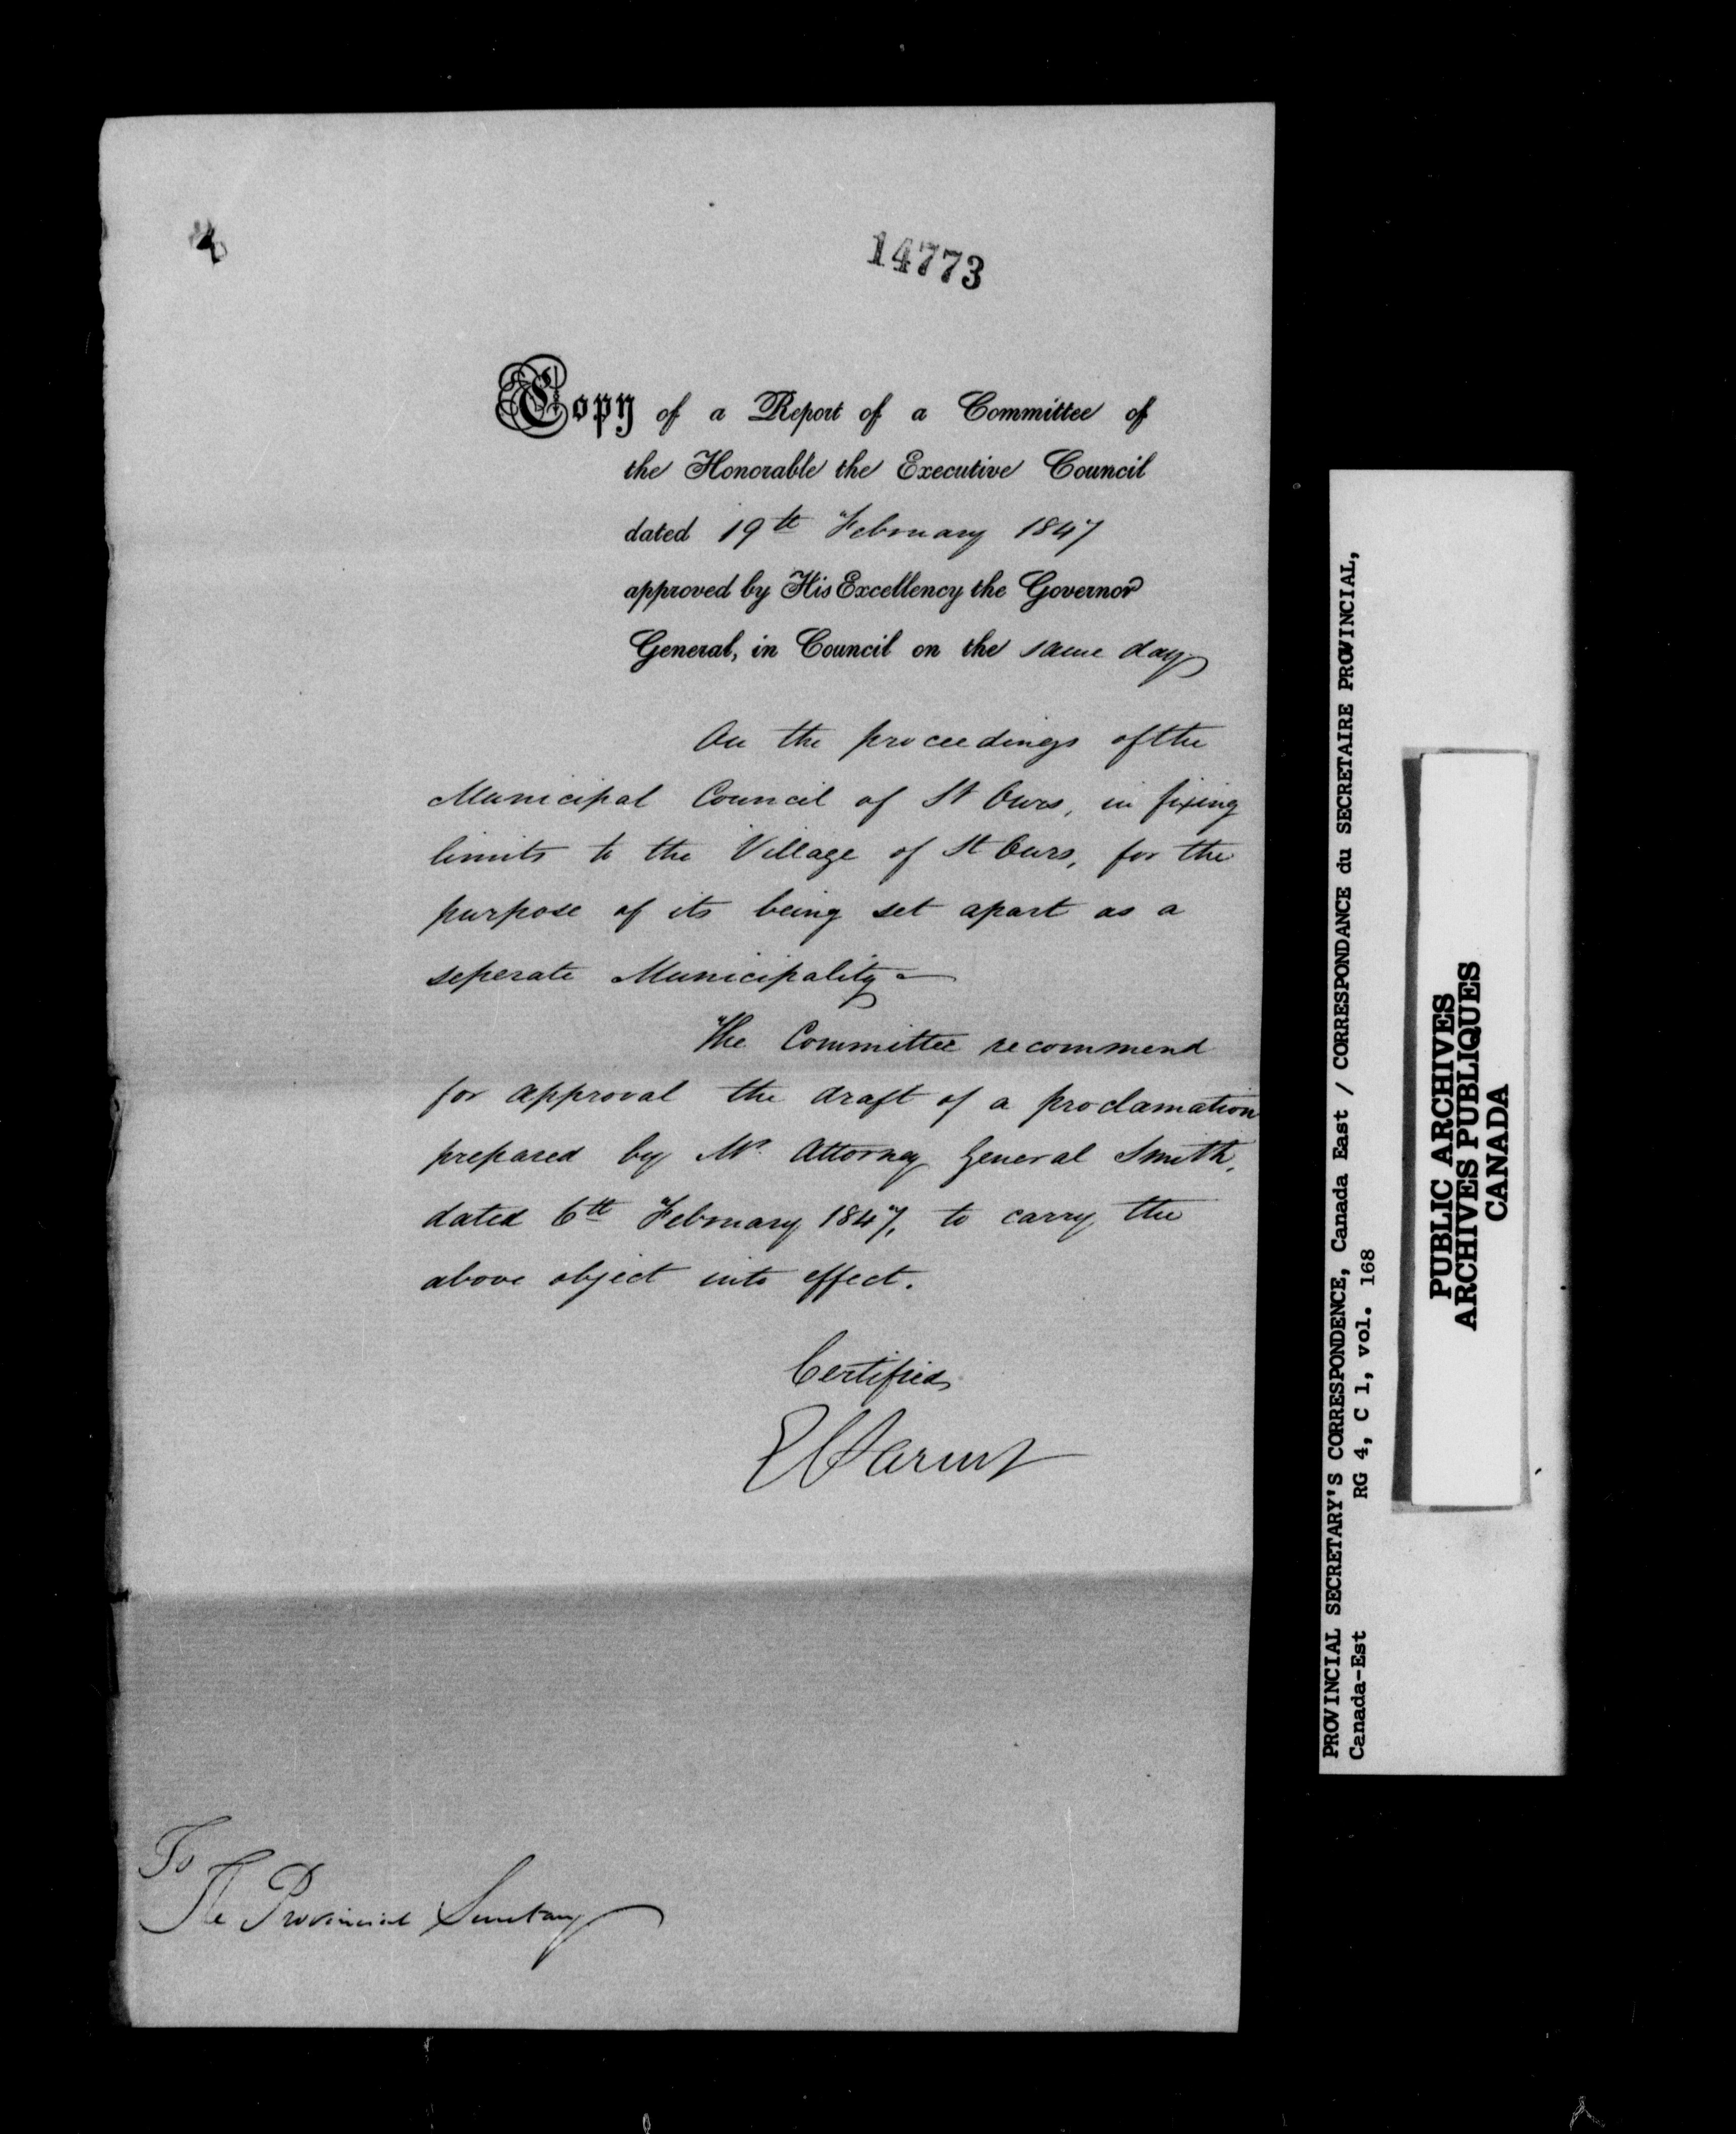 14773
Copy of a Report of a Committee of
the Honorable the Executive Council
dated 19th February 1847
approved by His Excellency the Governor
General, in Council on the same day
On the proceedings of the
Municipal Council of St Ours, in fixing
limits to the Village of St Ours, for the
purpose of its being set apart as a
seperate Municipality—
The Committee recommend
for approval the draft of a proclamation
prepared by Mr. Attorney General Smith,
dated 6th February 1847, to carry the
above object into effect.
Certified
E Parent
To
The Provincial Secretary
PROVINCIAL SECRETARY'S CORRESPONDENCE, Canada East / CORRESPONDANCE du SECRETAIRE PROVINCIAL,
Canada-Est RG 4, C 1, vol. 168
PUBLIC ARCHIVES
ARCHIVES PUBLIQUES
CANADA